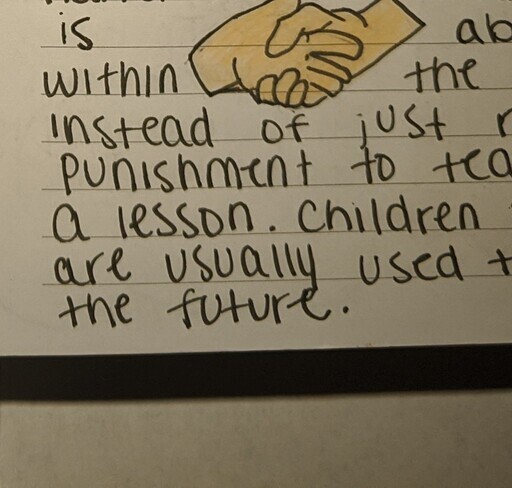 is
within the
instead of just
punishment to
a lesson. children
are usually used
the future.